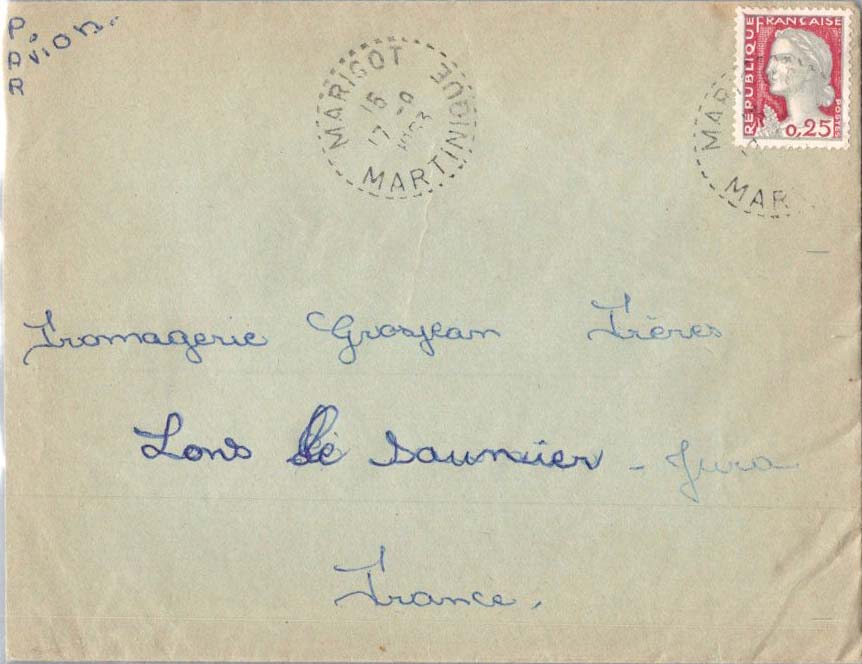 PAR
Avion.
MARIGOT
MARTINIQUE
15
17 -9
1963
RÉPUBLIQUE FRANÇAISE
POSTES
0,25
MAR
MAR
Fromagerie Grosjean Frères
Lons le Saunier - Jura
France.